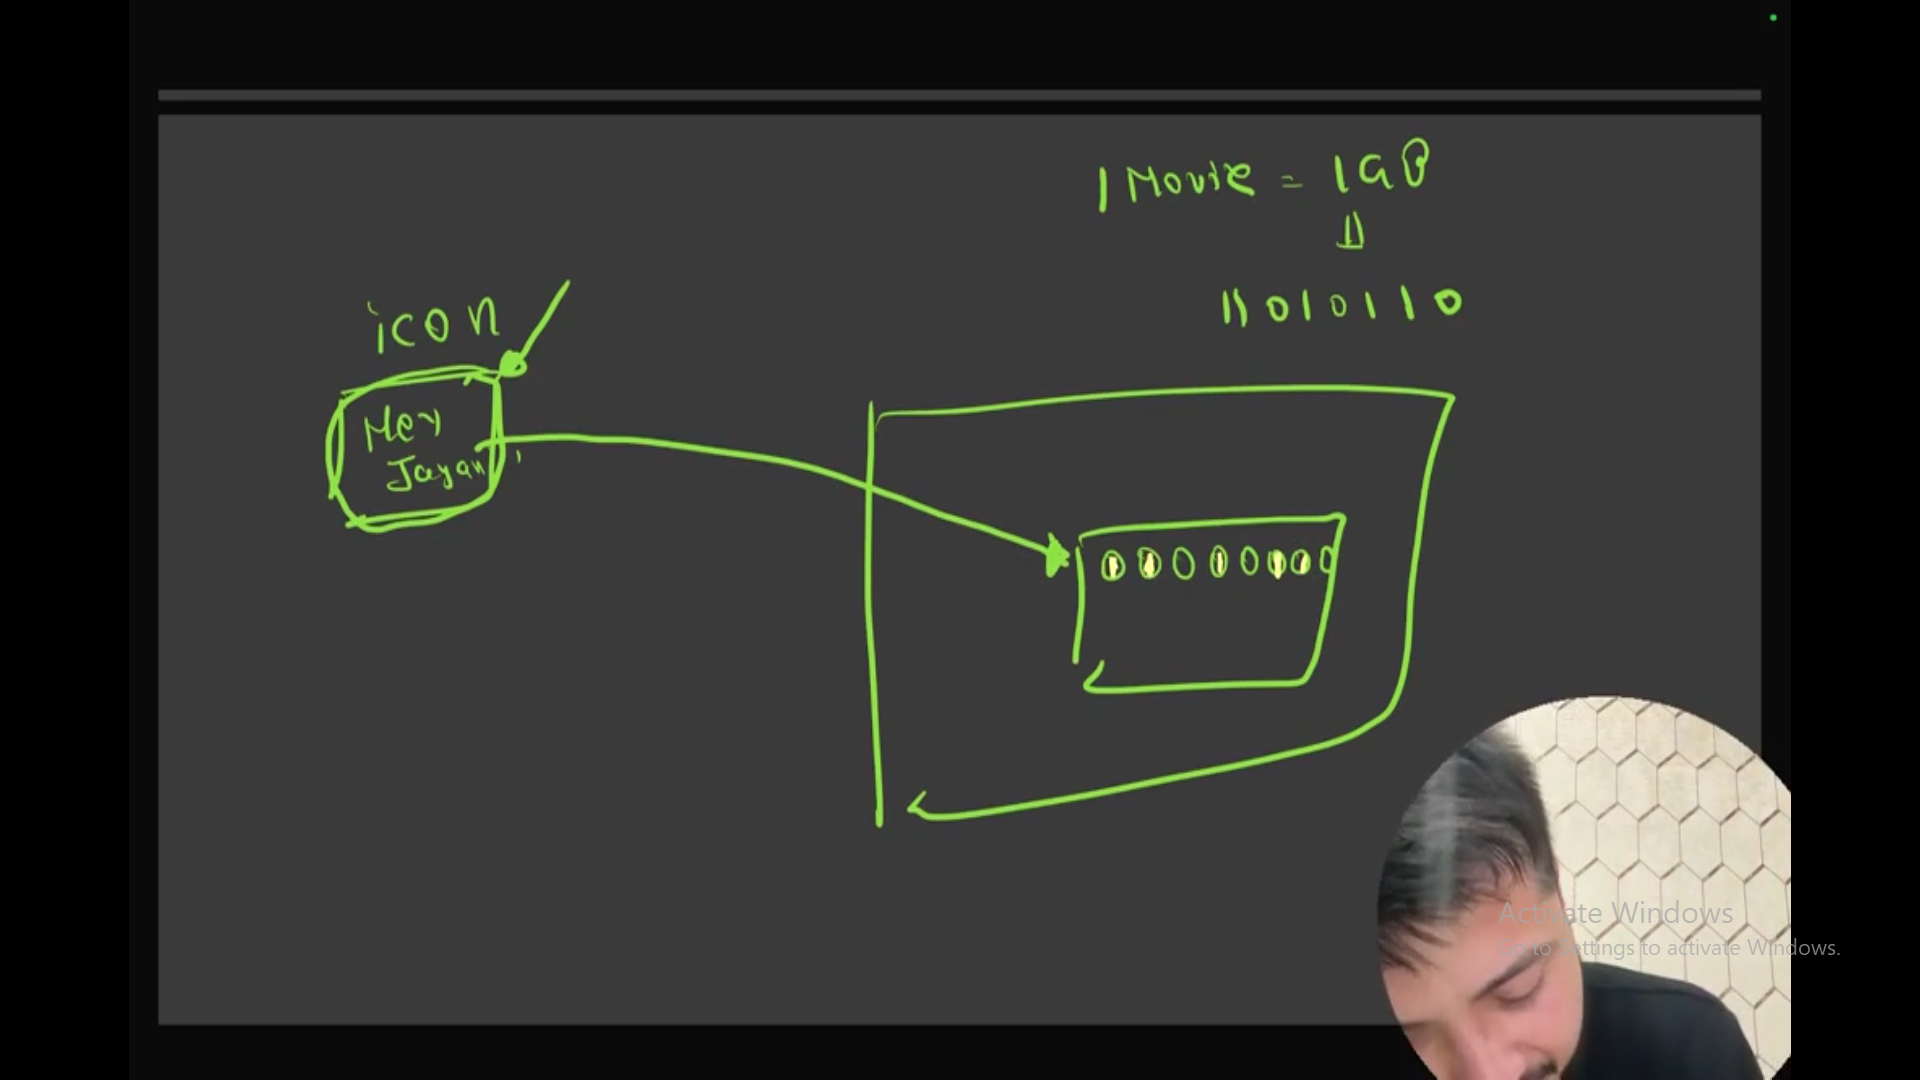 1 Movie = 1GB
11010110
icon
Hey
Jayan
0 0 0 0 0 0 0 0
Activate Windows
Go to Settings to activate Windows.